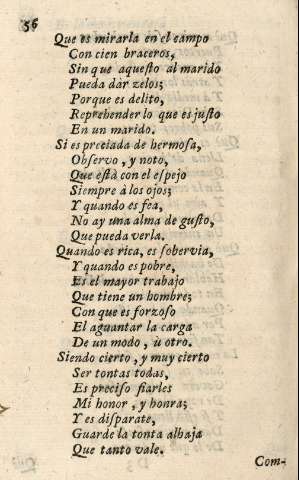 56
Que es mirarla en el campo
Con cien braceros,
Sin que aquesto al marido
Pueda dàr zelos;
Porque es delito,
Reprehender lo que es justo
En un marido.
Si es preciada de hermosa,
Observo, y noto,
Que està con el espejo
Siempre à los ojos;
Y quando es fea,
No ay una alma de gusto,
Que pueda verla.
Quando es rica, es sobervia,
Y quando es pobre,
Es el mayor trabajo
Que tiene un hombre;
Con que es forzoso
El aguantar la carga
De un modo, ù otro.
Siendo cierto, y muy cierto
Ser tontas todas,
Es preciso fiarles
Mi honor, y honra;
Y es disparate,
Guarde la tonta alhaja
Que tanto vale.
Com-